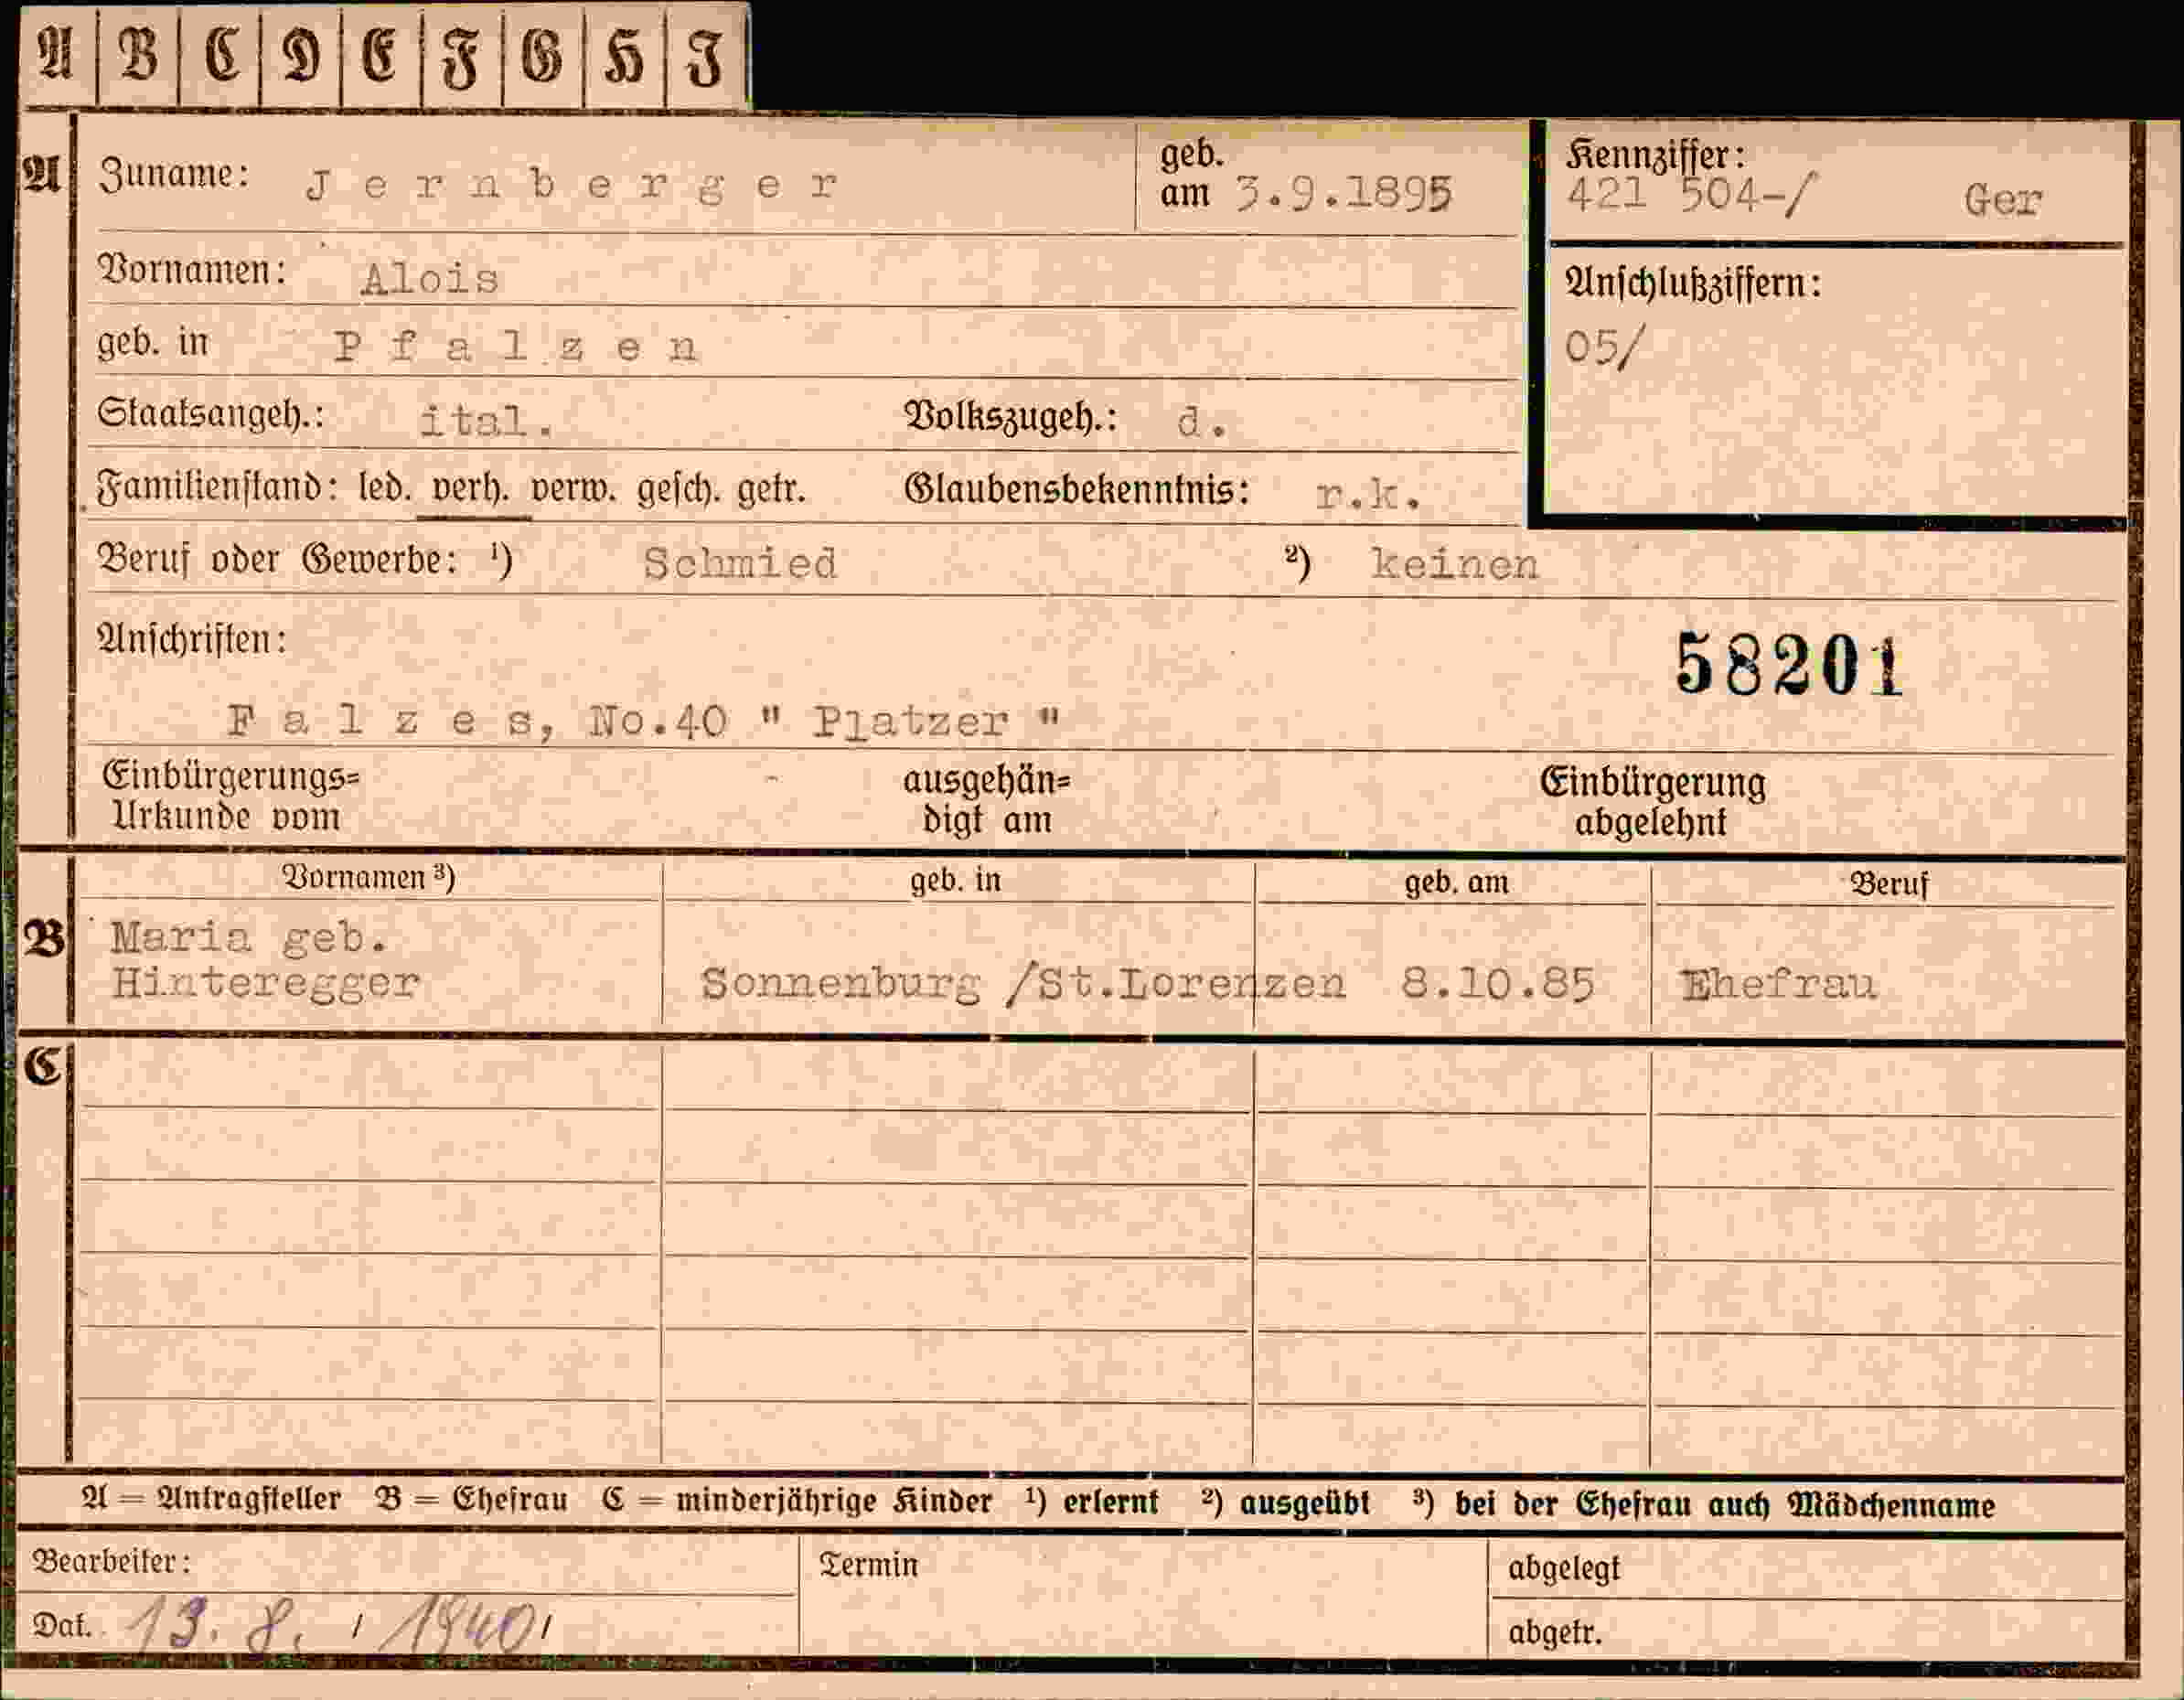 A B C D E F G H I
A Zuname: Jernberger geb. am 3.9.1895 Kennziffer: 421 504-/ Ger
Vornamen: Alois Anschlußziffern:
geb. in Pfalzen 05/
Staatsangeh.: ital. Volkszugeh.: d.
Familienstand: led. verh. verw. gesch. getr. Glaubensbekenntnis: r.k.
Beruf oder Gewerbe: ¹) Schmied ²) keinen
Anschriften:
58201
Falzes, No.40 " Platzer "
Einbürgerungs= ausgehän= Einbürgerung
Urkunde vom digt am abgelehnt
Vornamen ³) geb. in geb. am Beruf
B Maria geb.
Hinteregger Sonnenburg /St.Lorenzen 8.10.85 Ehefrau
C
A = Antragsteller B = Ehefrau C = minderjährige Kinder ¹) erlernt ²) ausgeübt ³) bei der Ehefrau auch Mädchenname
Bearbeiter: Termin abgelegt
Dat. 13. 8. / 1940/ abgetr.